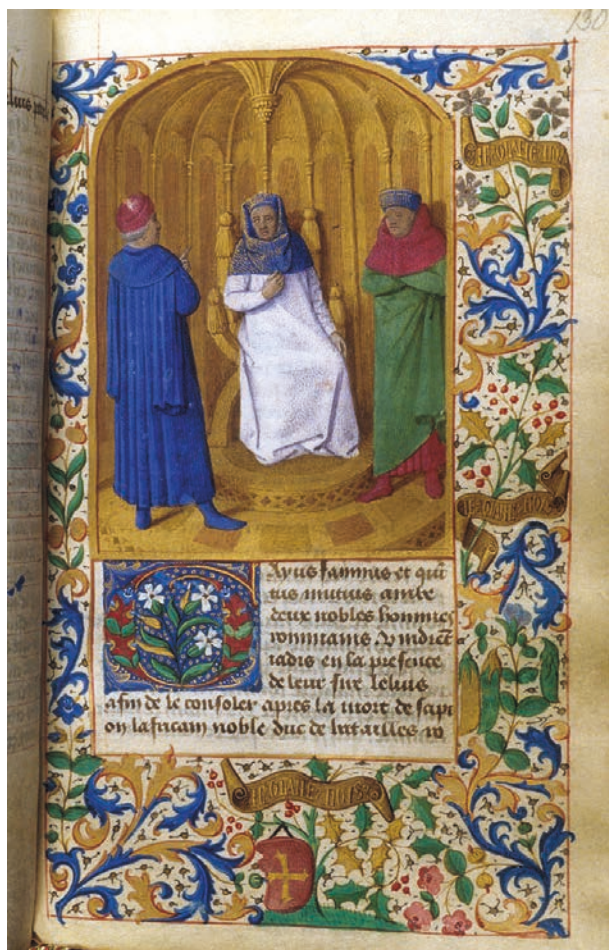 130
Gayus fannius et quī
tus mutius ambe
deux nobles hommes
rommains vindrēt
iadis en la presence
de leur sire lelius
afin de le consoler apres la mort de scipi
on lafricain noble duc de batailles ro